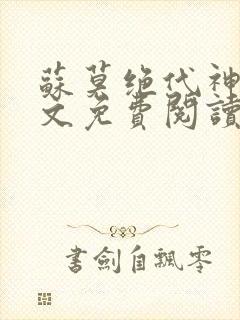 蘇莫绝代神
文免費閱讀
書劍自飄零